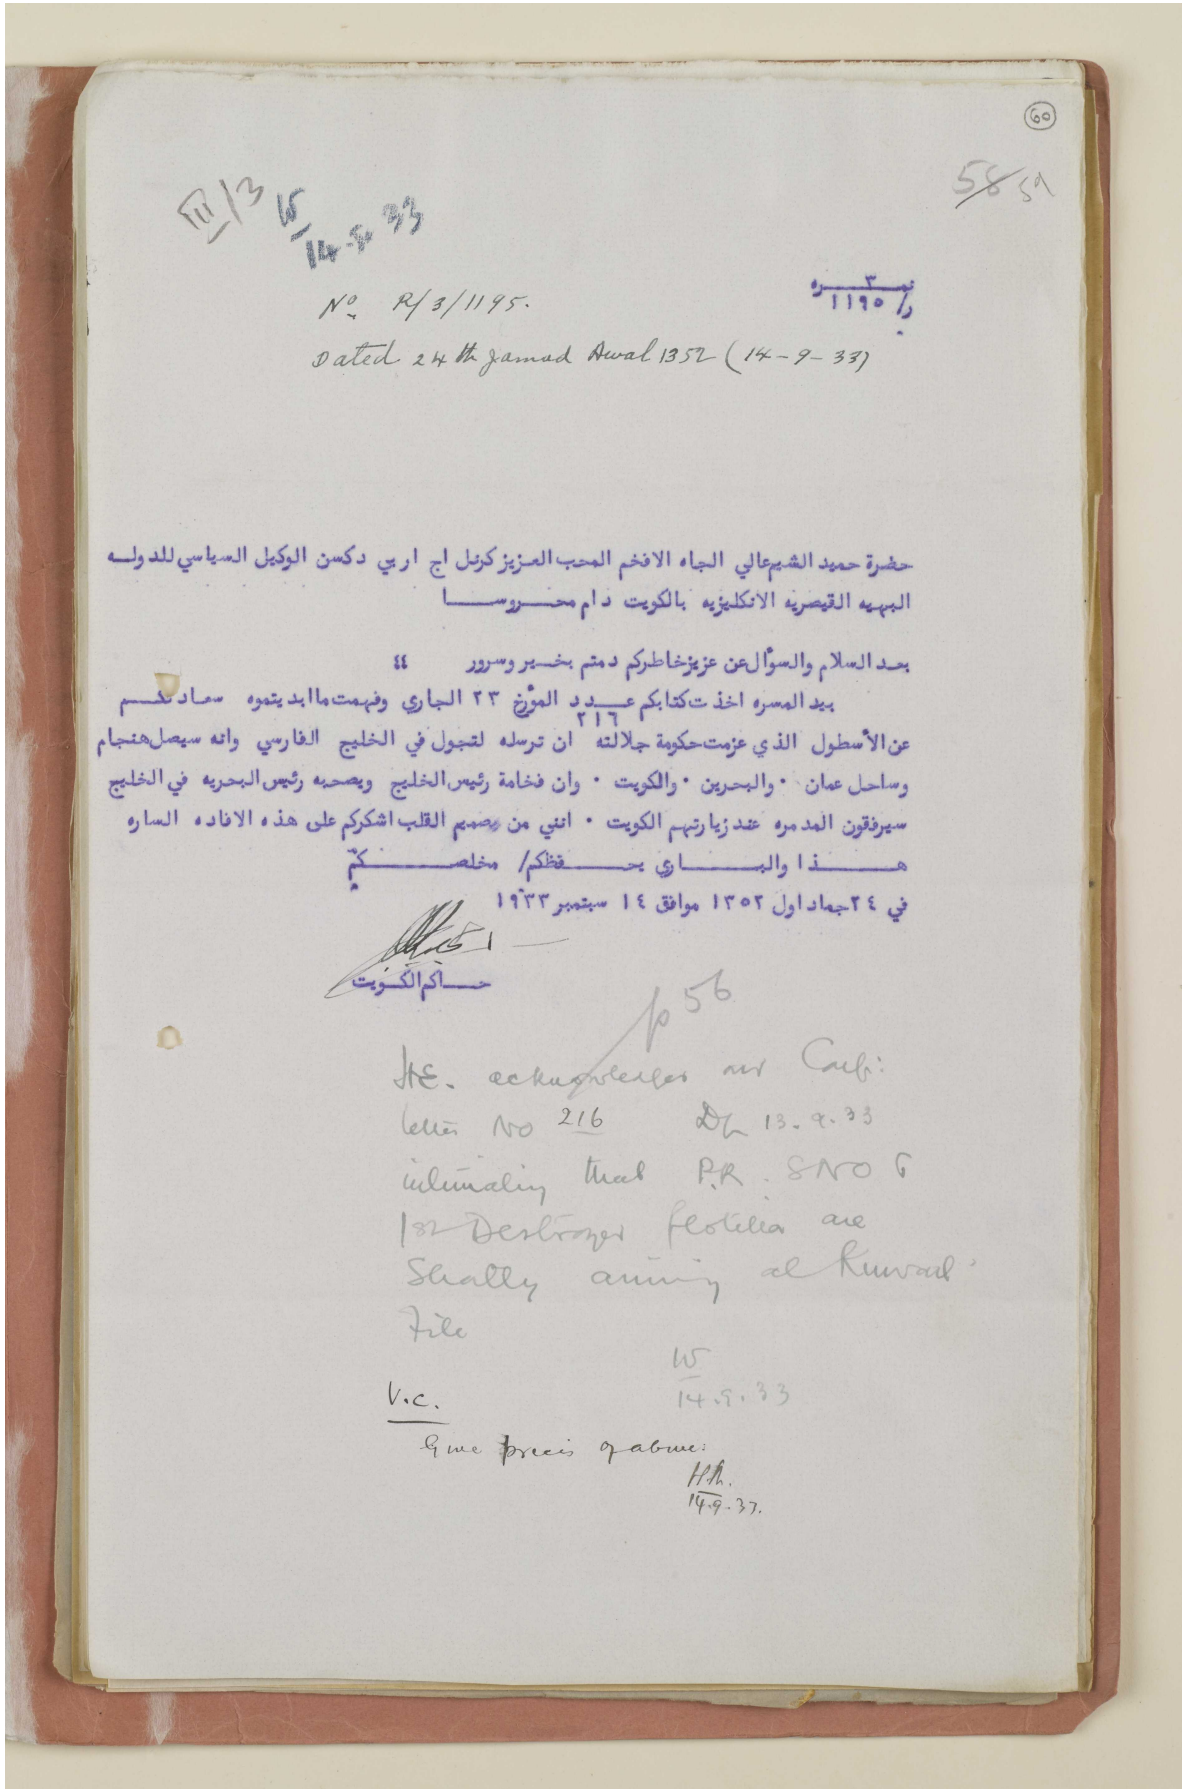 60
58 59
III/3
W
14-9-33
نمره ٣
ر/ ١١٩٥
No. R/3/1195.
Dated 24th Jamad Awal 1352 (14-9-33)
حضرة حميد الشيم عالي الجاه الافخم المحب العزيز كرنل اج اربي دكسن الوكيل السياسي للدولـــه
البهيه القيصريه الانكليزيه بالكويت دام محـــروســــا
بعد السلام والسؤال عن عزيز خاطركم دمتم بخـــير وسرور ،،
بيد المسره اخذت كتابكم عـــدد ٢١٦ المؤرخ ٢٣ الجاري وفهمت ما ابديتموه سعادتكـــم
عن الأسطول الذي عزمت حكومة جلالته ان ترسله لتجول في الخليج الفارسي وانه سيصل هنجام
وساحل عمان · والبحرين · والكويت · وان فخامة رئيس الخليج ويصحبه رئيس البحريه في الخليج
سيرفقون المدمره عند زيارتهم الكويت · انني من صميم القلب اشكركم على هذه الافاده الساره
هـــــذا والبـــــاري يحـــفظكم/ مخلصـــــكم
في ٢٤ جماد اول ١٣٥٢ موافق ١٤ سبتمبر ١٩٣٣
حـــاكم الكـــويت
p 56
H.E. acknowledges our Conf:
letter No 216 Dt 13.9.33
intimating that P.R. SNO &
1st Destroyer flotilla are
Shortly arriving at Kuwait.
File
W
14.9.33
V.C.
Give precis of above.
14.9.33.